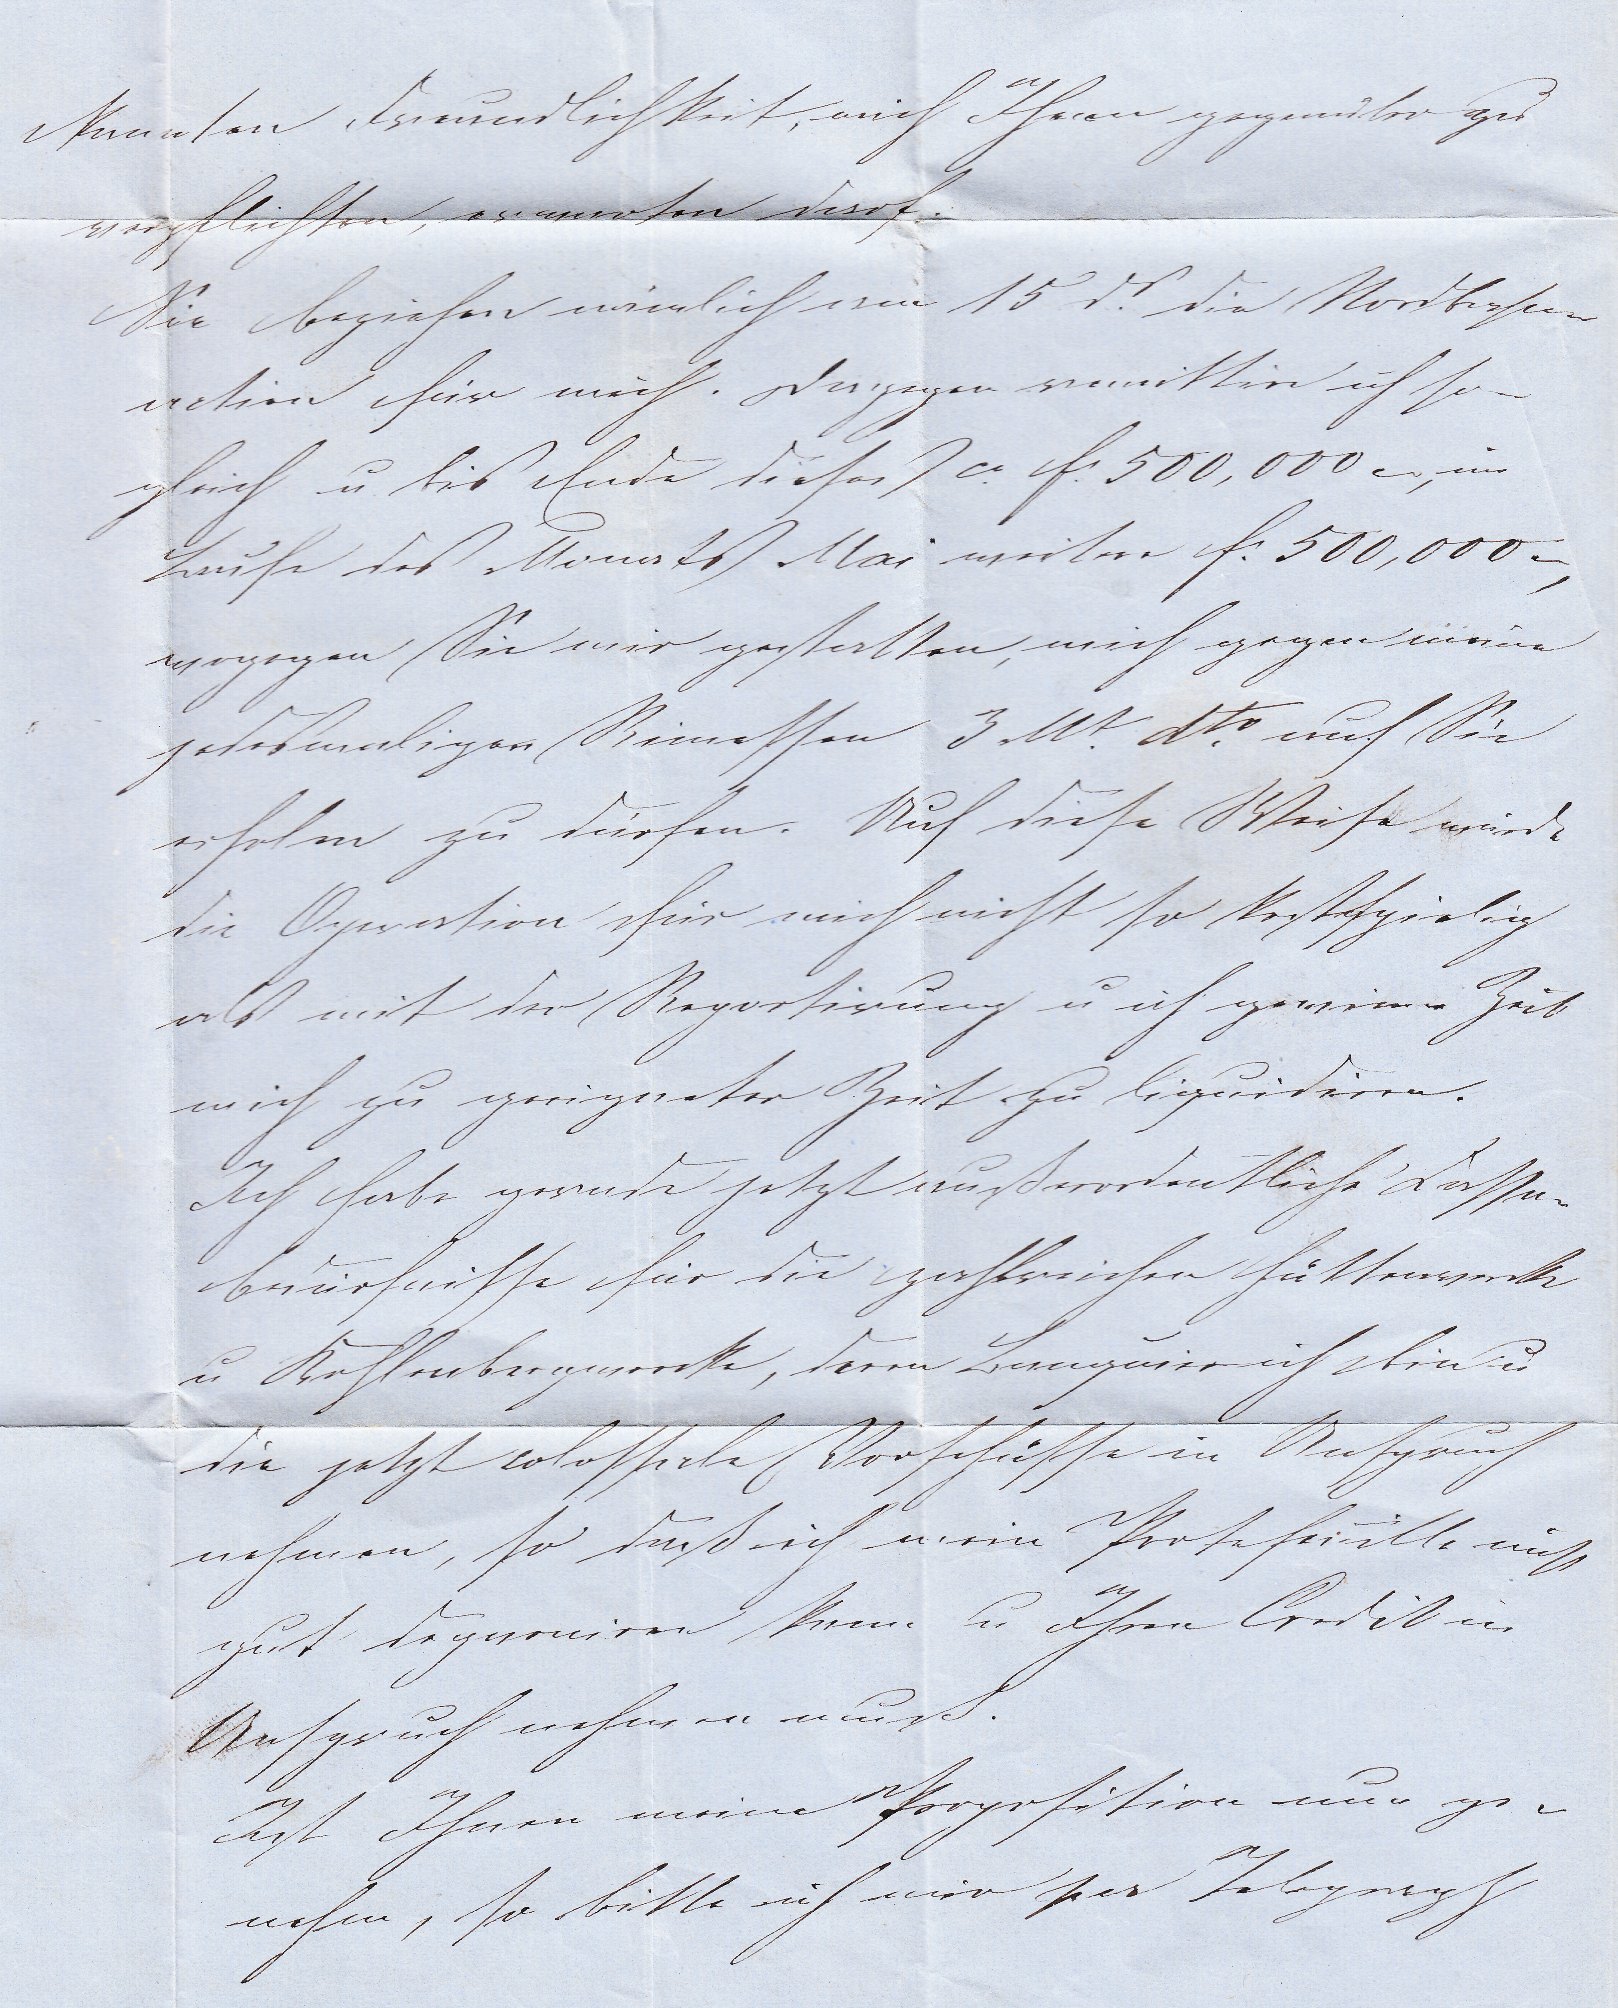 kannten Freundlichkeit, mich Ihnen gegenüber zu
verpflichten, erwarten darf.
Sie beziehen nämlich am 15 d.s die Nordbahn
actien für mich. Dagegen remittire ich so-
gleich u bis Ende dieses ca. f. 500,000 –, im
Laufe des Monats Mai weitere f. 500,000 –,
wogegen Sie mir gestatten, mich gegen meine
jedesmaligen Rimessen 3 Mt. dto auf Sie
erholen zu dürfen. Auf diese Weise würde
die Operation für mich nicht so kostspielig
als mit der Reportirung u ich gewinne Zeit
mich zu geeigneter Zeit zu liquidiren.
Ich habe gerade jetzt außerordentliche Cassa-
bedürfnisse für die zahlreichen Hüttenwerke
u Kohlenbergwerke, deren Banquier ich bin u
die jetzt colossale Vorschüsse in Anspruch
nehmen, so daß ich mein Portefeuille nicht
gut degarniren kann u Ihren Credit in
Anspruch nehmen muß.
Ist Ihnen meine Proposition nun ge-
nehm, so bitte ich mir per Telegraph